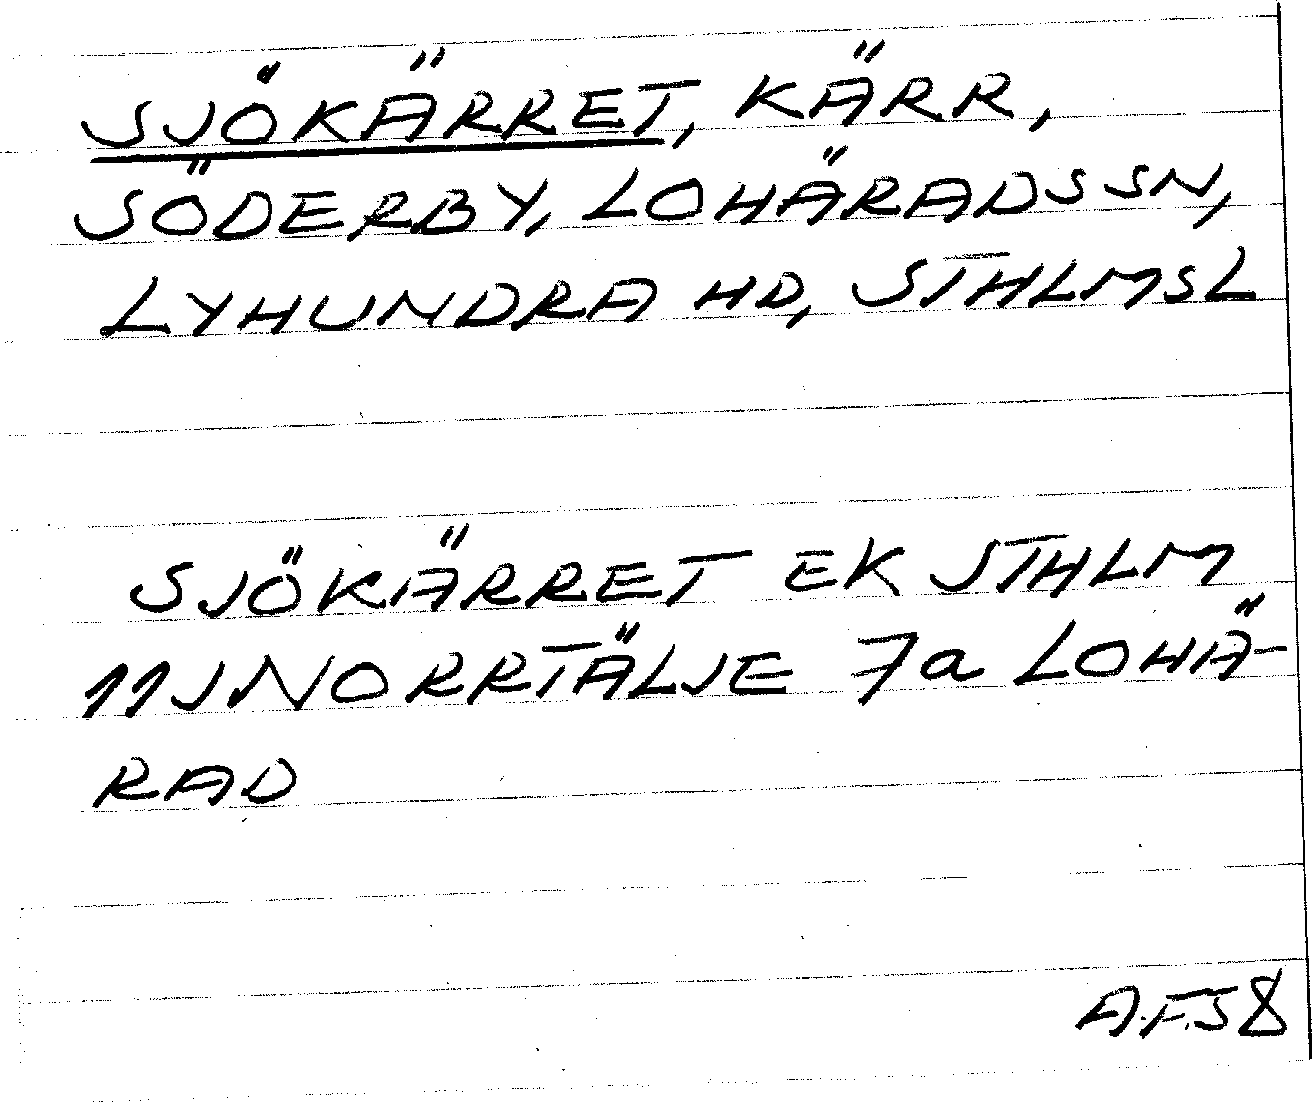 SJÖKÄRRET, KÄRR,
SÖDERBY, LOHÄRADS SN,
LYHUNDRA HD, STHLMSL
SJÖKÄRRET EK STHLM
11J NORRTÄLJE 7a LOHÄ-
RAD
A.F.S8